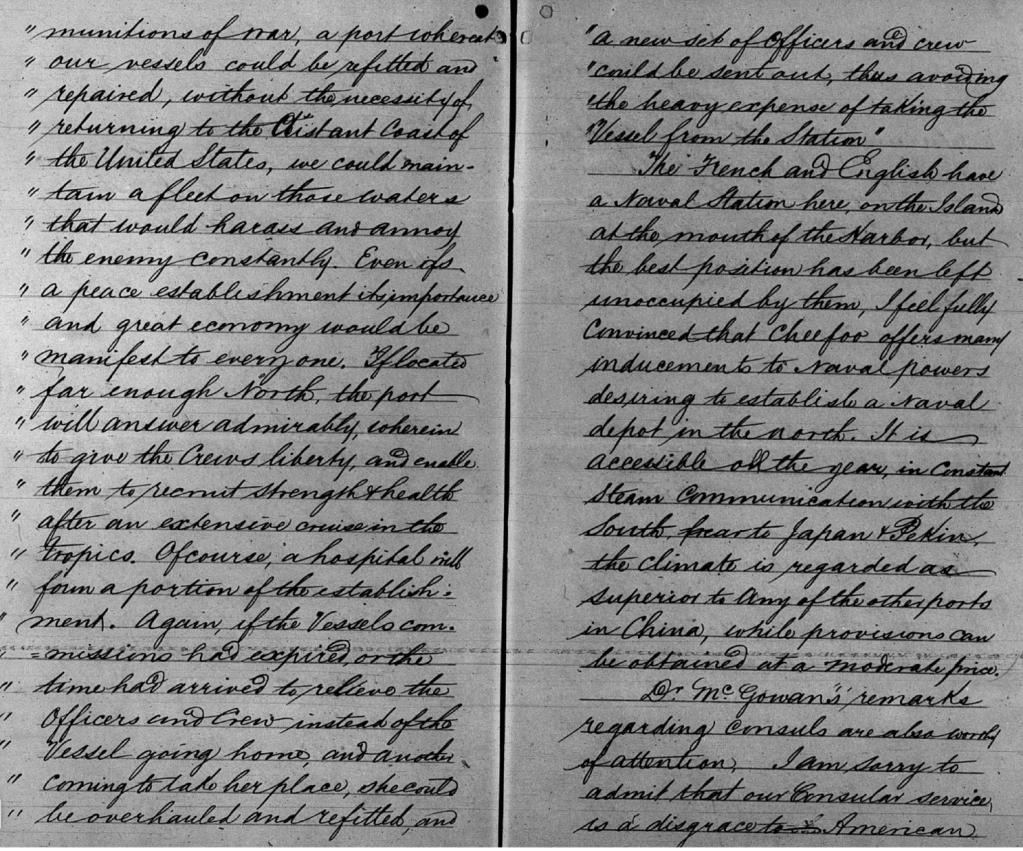 " munitions of war, a port whereat
" our vessels could be refitted and
" repaired, without the necessity of
" returning to the distant Coast of
" the United States, we could main-
" tain a fleet on those waters
" that would harass and annoy
" the enemy constantly. Even as
" a peace establishment its importance
" and great economy would be
" manifest to every one. If located
" far enough North, the port
" will answer admirably, wherein
" to give the Crews liberty, and enable
" them to recruit strength & health
" after an extensive cruise in the
" tropics. Of course, a hospital will
" form a portion of the establish:
" ment. Again, if the Vessels com-
" =missions had expired, or the
" time had arrived to relieve the
" Officers and Crew instead of the
" Vessel going home, and another
" coming to take her place, she could
" be overhauled and refitted, and
"a new set of Officers and crew
"could be sent out, thus avoiding
"the heavy expense of taking the
"Vessel from the Station"
The French and English have
a Naval Station here, on the Island
at the mouth of the Harbor, but
the best position has been left
unoccupied by them, I feel fully
Convinced that Cheefoo offers many
inducements to Naval powers
desiring to establish a Naval
depot in the north. It is
accessible all the year, in Constant
Steam Communication with the
South, near to Japan & Pekin,
the climate is regarded as
superior to any of the other ports
in China, while provisions can
be obtained at a moderate price.
Dr. McGowan's remarks
regarding Consuls are also worthy
of attention, I am sorry to
admit that our Consular service,
is a disgrace to American